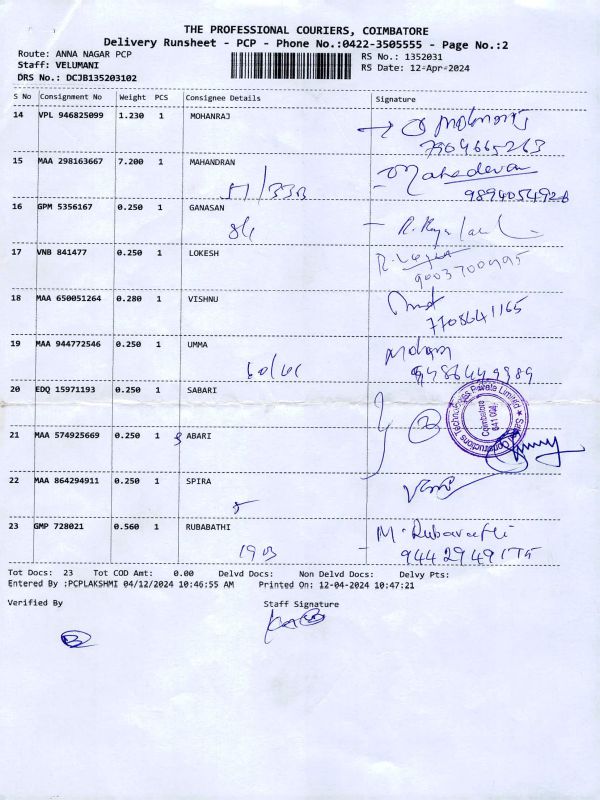 THE PROFESSIONAL COURIERS, COIMBATORE
Delivery Runsheet - PCP - Phone No.:0422-3505555 - Page No.:2
Route: ANNA NAGAR PCP
Staff: VELUMANI
DRS No.: DCJB135203102
RS No.: 1352031
RS Date: 12-Apr-2024
S No Consignment No Weight PCS Consignee Details Signature
14 VPL 946825099 1.230 1 MOHANRAJ
7904665263
15 MAA 298163667 7.200 1 MAHANDRAN Mahadevan
51/33B 9894054926
16 GPM 5356167 0.250 1 GANASAN
84
17 VNB 841477 0.250 1 LOKESH
9003700495
18 MAA 650051264 0.280 1 VISHNU
7708641165
19 MAA 944772546 0.250 1 UMMA
9486449989
20 EDQ 15971193 0.250 1 SABARI
21 MAA 574925669 0.250 1 S ABARI
Coimbatore
641 008.
22 MAA 864294911 0.250 1 SPIRA
5
23 GMP 728021 0.560 1 RUBABATHI M. Rubavathi
19B 9442949175
Tot Docs: 23 Tot COD Amt: 0.00 Delvd Docs: Non Delvd Docs: Delvy Pts:
Entered By :PCPLAKSHMI 04/12/2024 10:46:55 AM Printed On: 12-04-2024 10:47:21
Verified By Staff Signature